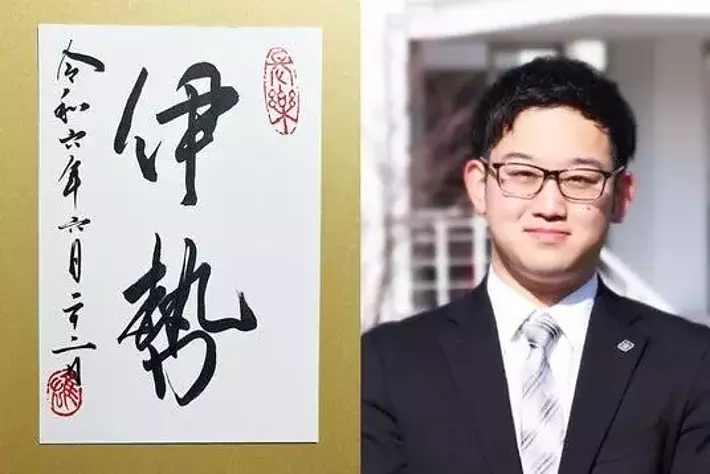 長樂
伊勢
令和六年六月二十二日